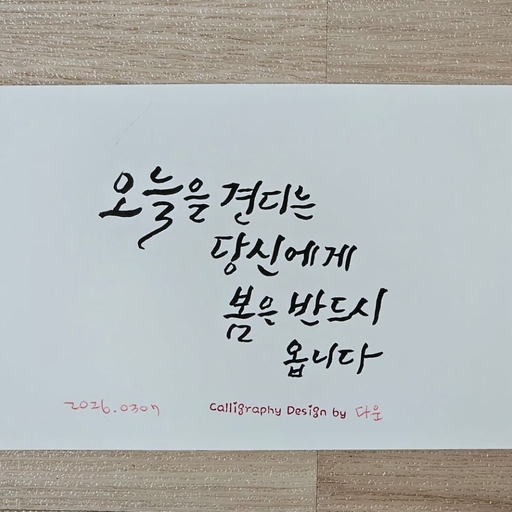 오늘을 견디는
당신에게
봄은 반드시
옵니다
2026.0307 Calligraphy Design by 다운